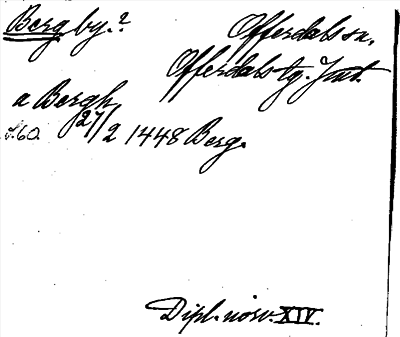 Berg by.? Offerdals sn.
Offerdals tg. Jmt.
a Bergh
s.60. 27/2 1448 Berg.
Dipl. norv. XIV.